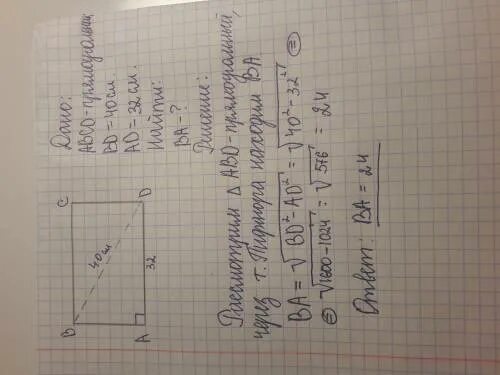 B
C
40см
A
32
D
Дано:
ABCD-прямоугольник
BD=40см.
AD=32см.
Найти:
BA-?
Решение:
Рассмотрим △ABD-прямоугольный,
через т. Пифагора находим BA
BA=√BD²-AD²=√40²-32² =
=√1600-1024=√576=24
Ответ: BA=24